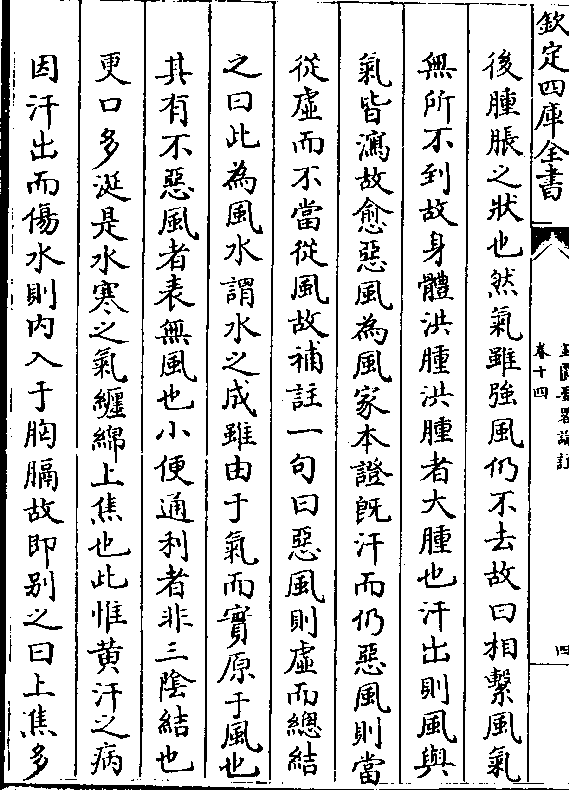 欽定四庫全書
金匱要畧論註
卷十四
四
後腫脹之狀也然氣雖強風仍不去故曰相繫風氣
無所不到故身體洪腫洪腫者大腫也汗出則風與
氣皆瀉故愈惡風為風家本證既汗而仍惡風則當
從虛而不當從風故補註一句曰惡風則虛而總結
之曰此為風水謂水之成雖由于氣而實原于風也
其有不惡風者表無風也小便通利者非三陰結也
更口多涎是水寒之氣纏綿上焦也此惟黄汗之病
因汗出而傷水則内入于胸膈故即别之曰上焦多